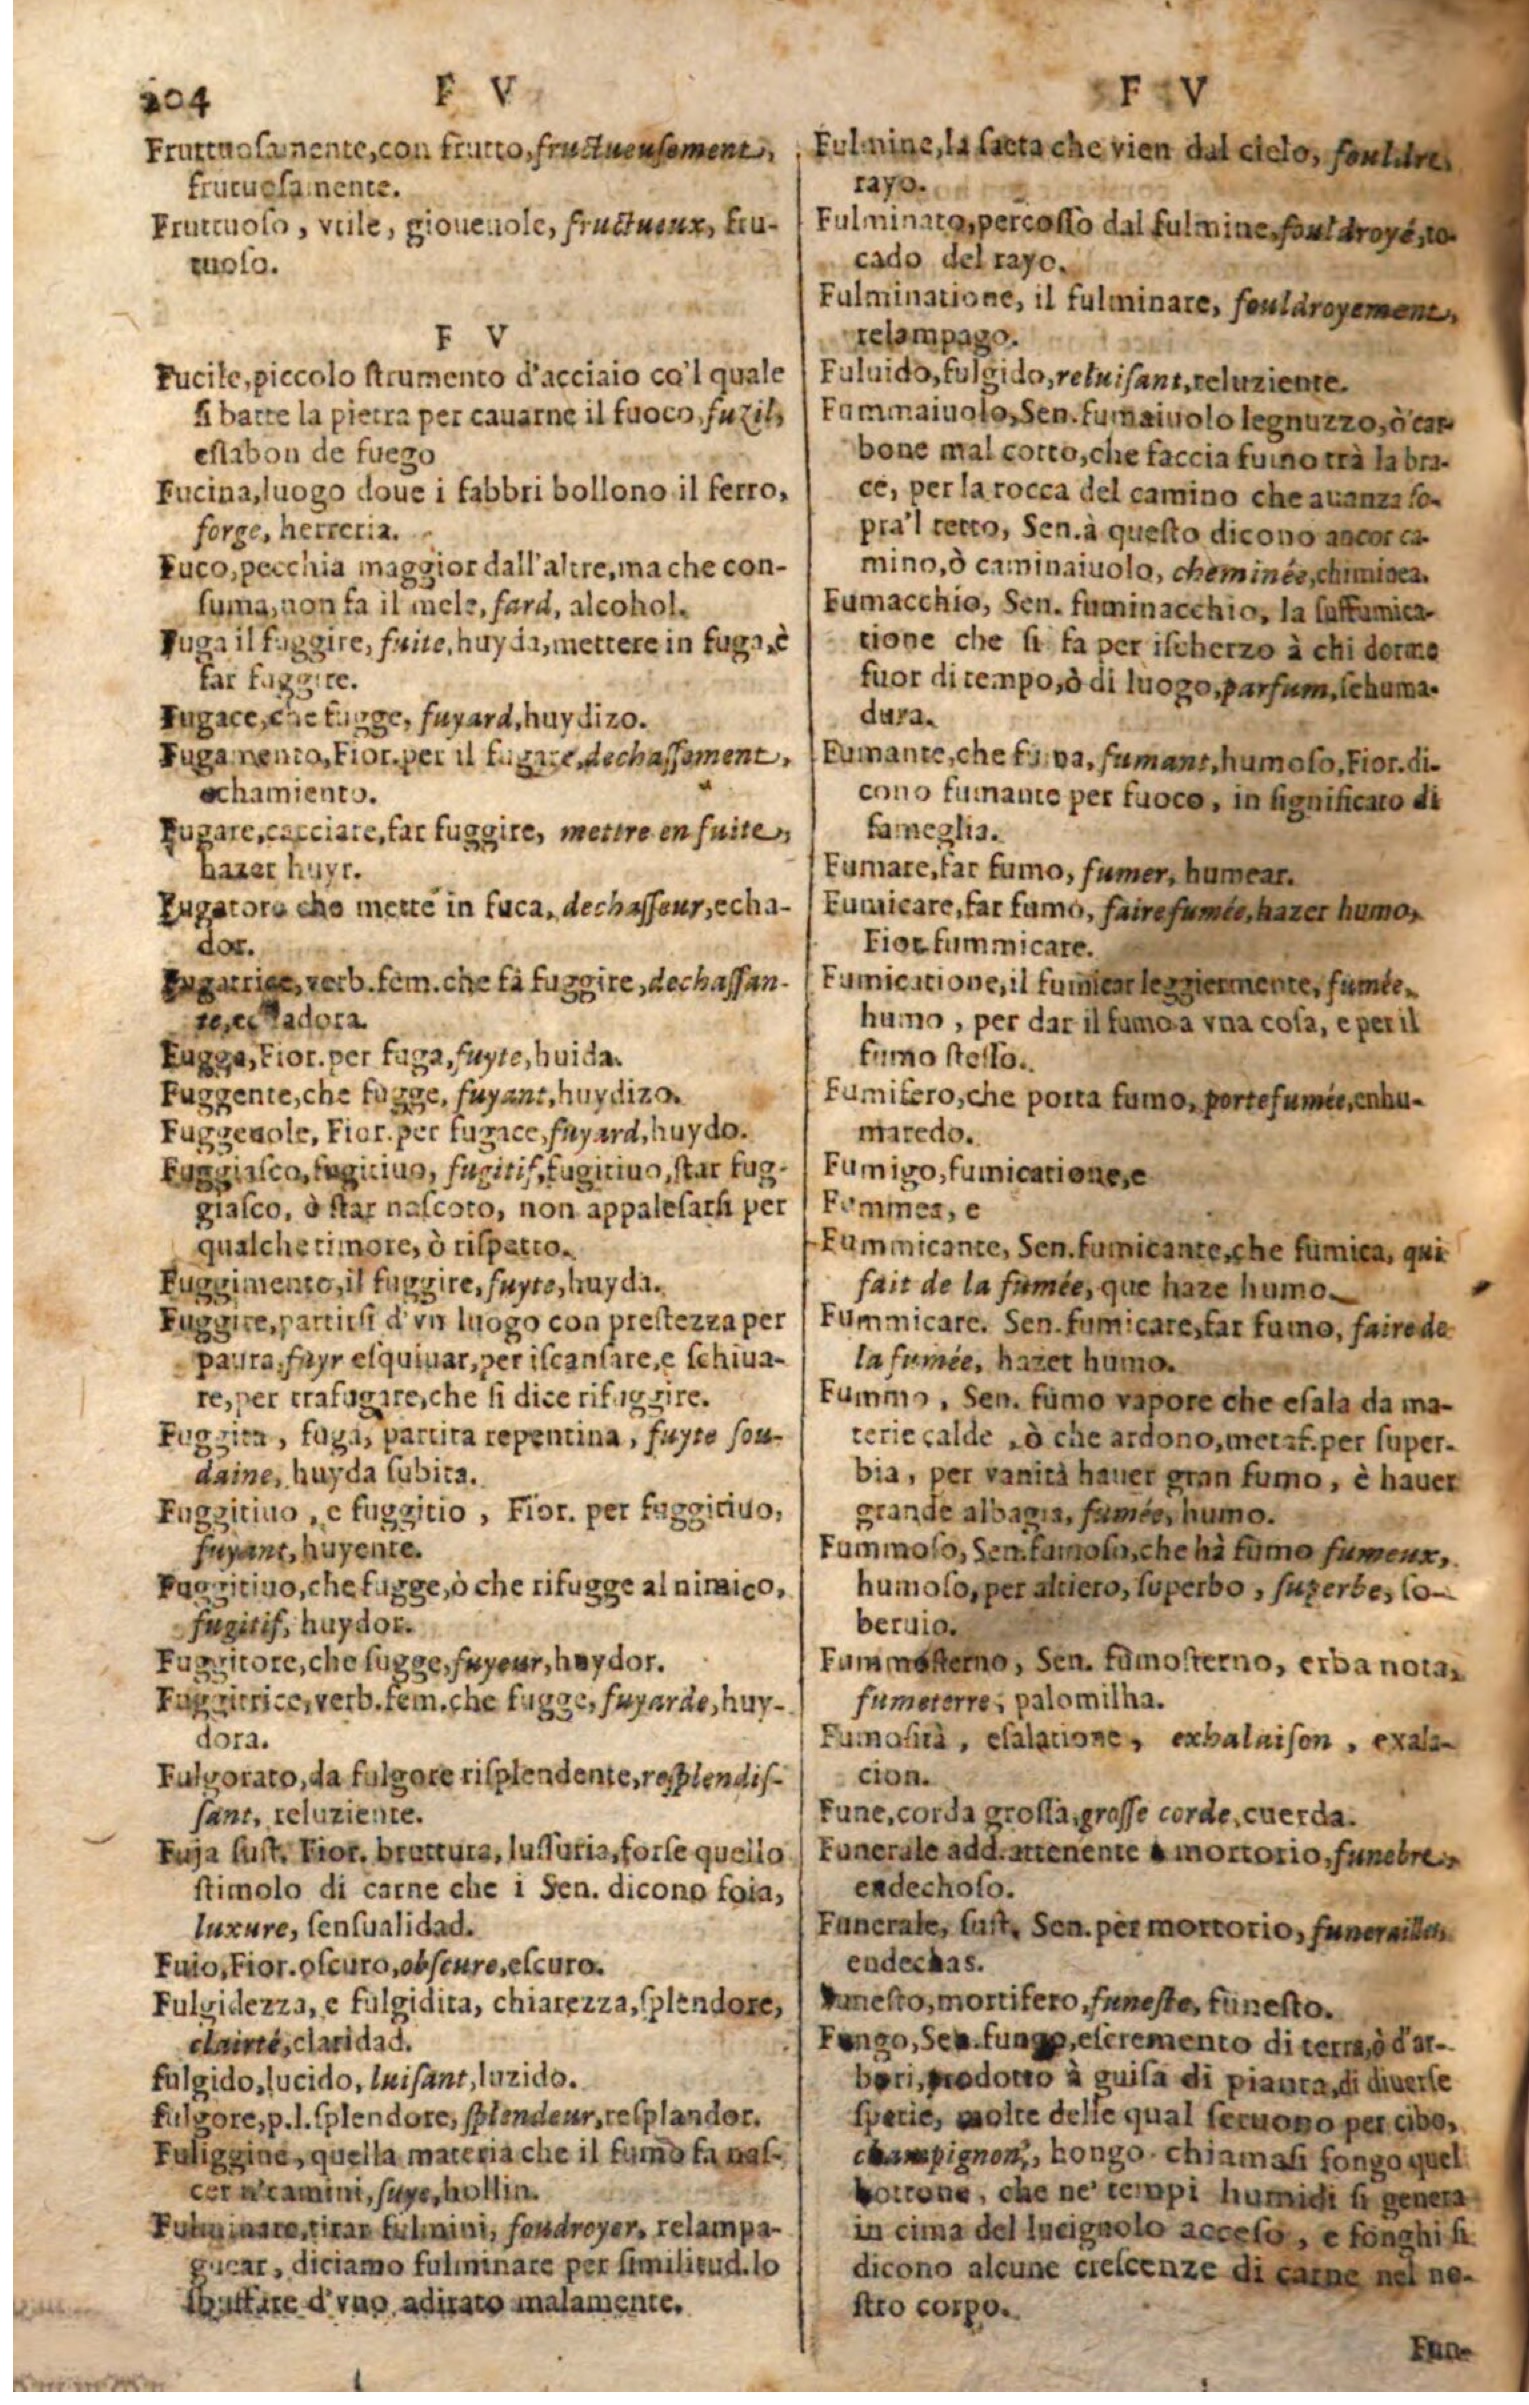 204 F V
Fruttuosamente, con frutto, fructueusement,
frutuosamente.
Fruttuoso, vtile, gioueuole, fructueux, fru-
tuoso.
F V
Fucile, piccolo strumento d'acciaio co'l quale
si batte la pietra per cauarne il fuoco, fuzil,
eslabon de fuego
Fucina, luogo doue i fabbri bollono il ferro,
forge, herreria.
Fuco, pecchia maggior dall'altre, ma che con-
suma, non fa il mele, fard, alcohol.
Fuga il fuggire, fuite, huyda, mettere in fuga, è
far fuggire.
Fugace, che fugge, fuyard, huydizo.
Fugamento, Fior. per il fugare, dechassement,
echamiento.
Fugare, cacciare, far fuggire, mettre en fuite,
hazer huyr.
Fugatore che mette in fuca, dechasseur, echa-
dor.
Fugatrice, verb. fem. che fà fuggire, dechassan-
te, echadora.
Fugga, Fior. per fuga, fuyte, huida.
Fuggente, che fugge, fuyant, huydizo.
Fuggeuole, Fior. per fugace, fuyard, huydo.
Fuggiasco, fugitiuo, fugitif, fugitiuo, star fug-
giasco, ò star nascoto, non appalesarsi per
qualche timore, ò rispetto.
Fuggimento, il fuggire, fuyte, huyda.
Fuggire, partirsi d'vn luogo con prestezza per
paura, fuyr esquiuar, per iscansare, e schiua-
re, per trafugare, che si dice rifuggire.
Fuggita, fuga, partita repentina, fuyte sou-
daine, huyda subita.
Fuggitiuo, e fuggitio, Fior. per fuggitiuo,
fuyant, huyente.
Fuggitiuo, che fugge, ò che rifugge al nimico,
fugitif, huydor.
Fuggitore, che fugge, fuyeur, huydor.
Fuggitrice, verb. fem. che fugge, fuyarde, huy-
dora.
Fulgorato, da fulgore risplendente, resplendis-
sant, reluziente.
Fuja sust. Fior. bruttura, lussuria, forse quello
stimolo di carne che i Sen. dicono foia,
luxure, sensualidad.
Fuio, Fior. oscuro, obscure, escuro.
Fulgidezza, e fulgidita, chiarezza, splendore,
clairté, claridad.
fulgido, lucido, luisant, luzido.
fulgore, p. l. splendore, splendeur, resplandor.
Fuliggine, quella materia che il fumo fa nas-
cer n'camini, suye, hollin.
Fulminare, tirar fulmini, foudroyer, relampa-
guear, diciamo fulminare per similitud. lo
sbuffare d'vno adirato malamente.
F V
Fulmine, la saetta che vien dal cielo, fouldre,
rayo.
Fulminato, percosso dal fulmine, fouldroyé, to-
cado del rayo.
Fulminatione, il fulminare, fouldroyement,
relampago.
Fuluido, fulgido, reluisant, reluziente.
Fummaiuolo, Sen. fumaiuolo legnuzzo, ò car-
bone mal cotto, che faccia fumo trà la bra-
ce, per la rocca del camino che auanza so-
pra'l tetto, Sen. à questo dicono ancor ca-
mino, ò caminaiuolo, cheminée, chiminea.
Fumacchio, Sen. fuminacchio, la suffumica-
tione che si fa per ischerzo à chi dorme
fuor di tempo, ò di luogo, parfum, schuma-
dura.
Fumante, che fuma, fumant, humoso, Fior. di-
cono fumante per fuoco, in significato di
fameglia.
Fumare, far fumo, fumer, humear.
Fumicare, far fumo, faire fumée, hazer humo,
Fior. fummicare.
Fumicatione, il fumicar leggiermente, fumée,
humo, per dar il fumo a vna cosa, e per il
fumo stesso.
Fumifero, che porta fumo, porte fumée, enhu-
maredo.
Fumigo, fumicatione, e
Fummea, e
Fummicante, Sen. fumicante, che fumica, qui
fait de la fumée, que haze humo.
Fummicare. Sen. fumicare, far fumo, faire de
la fumée, hazer humo.
Fummo, Sen. fumo vapore che esala da ma-
terie calde, ò che ardono, metaf. per super-
bia, per vanità hauer gran fumo, è hauer
grande albagia, fumée, humo.
Fummoso, Sen. fumoso, che hà fumo fumeux,
humoso, per altiero, superbo, superbe, so-
beruio.
Fummosterno, Sen. fumosterno, erba nota,
fumeterre, palomilha.
Fumosità, esalatione, exhalaison, exala-
cion.
Fune, corda grossa, grosse corde, cuerda.
Funerale add. attenente a mortorio, funebre,
endechoso.
Funerale, sust. Sen. per mortorio, funerailles,
endechas.
Funesto, mortifero, funeste, funesto.
Fungo, Sen. fungo, escremento di terra, ò d'ar-
bori, prodotto à guisa di pianta, di diuerse
spetie, molte delle qual seruono per cibo,
champignon, hongo. chiamasi fongo quel
bottone, che ne' tempi humidi si genera
in cima del lucignolo acceso, e fonghi si
dicono alcune crescenze di carne nel no-
stro corpo.
Fun-